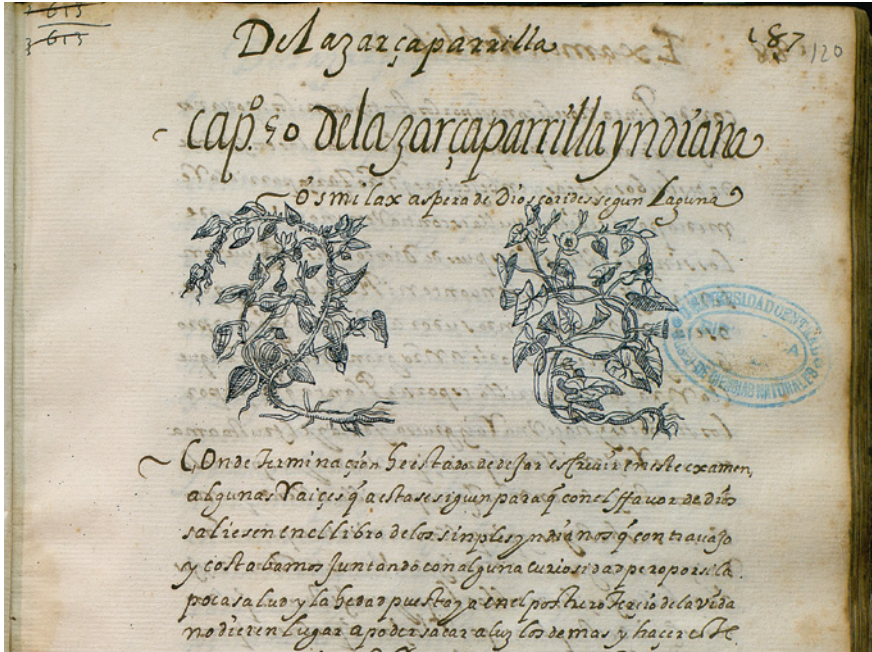 2 615
3 615
Delazarçaparrilla
187
120
cap.º 50 delazarçaparrillayndiana
O smilax aspera de Dioscorides segun Laguna
UNIVERSIDAD CENTRAL
DE CIENCIAS NATURALES
COn determinaçion he istado de dejar escreuir en este examen,
algunas Raiçes q̃ a esta se siguen para q̃ con el ffavor de dios
saliesen en el libro de los sinples yndianos q̃ con travajo
y costa bamos juntando con alguna curiosidad pero por si la
poca salud y la hedad puesto ya en el postrero terçio de la vida
no dieren lugar a poder sacar a luz los demas y haçer este